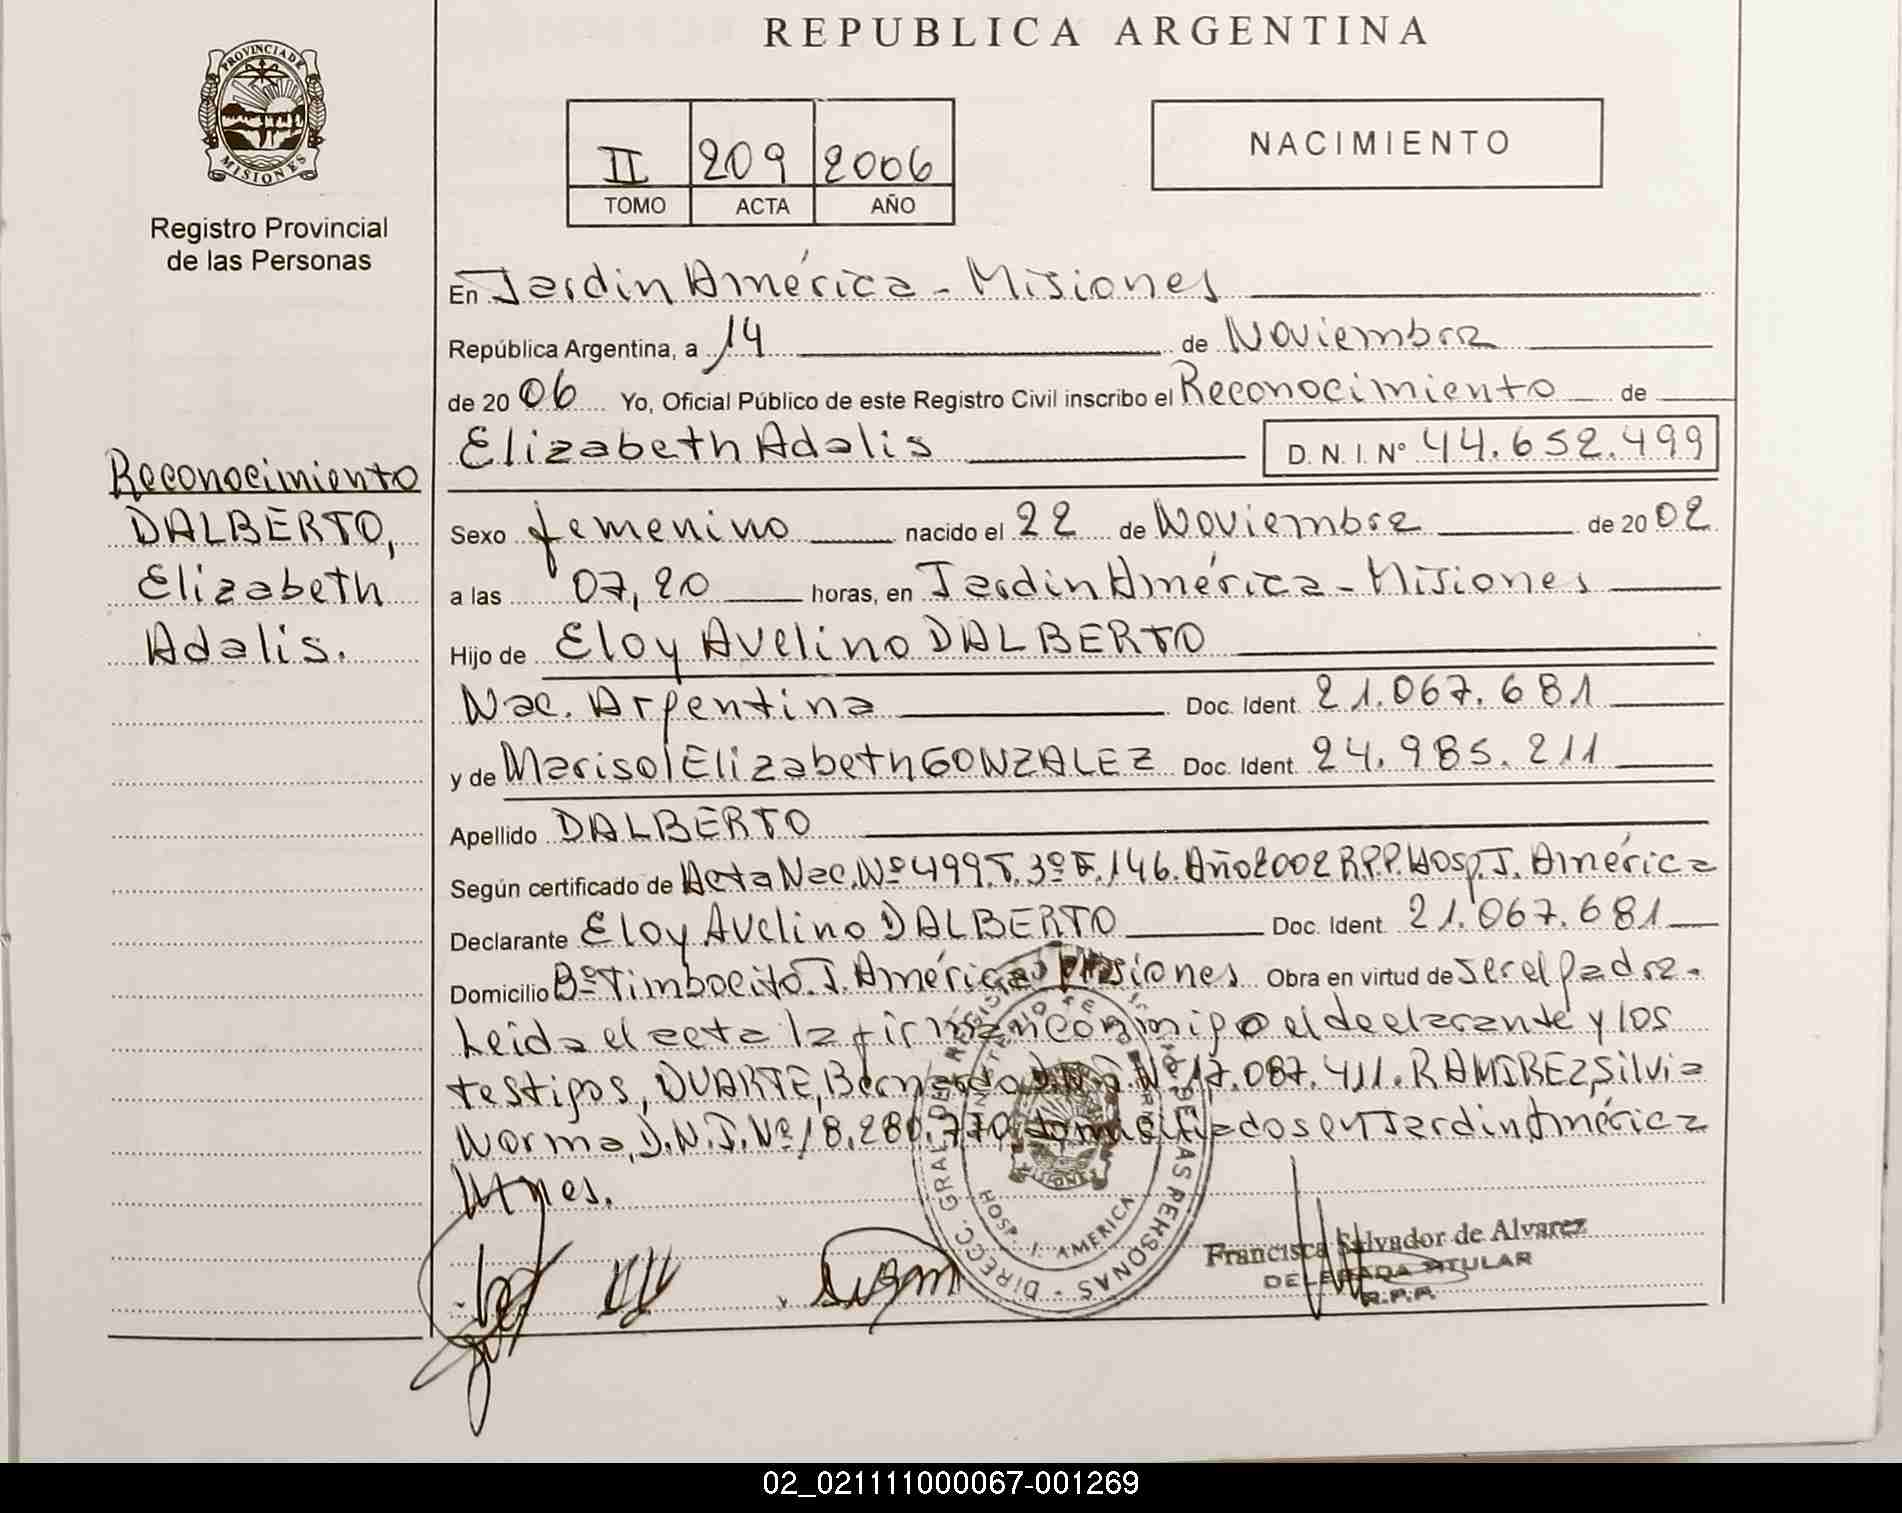 REPUBLICA ARGENTINA
PROVINCIA DE MISIONES
Registro Provincial
de las Personas
II 209 2006
TOMO ACTA AÑO
NACIMIENTO
En Jardin América - Misiones
República Argentina, a 14 de Noviembre
de 2006 Yo, Oficial Público de este Registro Civil inscribo el Reconocimiento de
Elizabeth Adalis D.N.I. Nº 44.652.499
Reconocimiento
DALBERTO,
Elizabeth
Adalis.
Sexo femenino nacido el 22 de Noviembre de 2002
a las 07,20 horas, en Jardin América - Misiones
Hijo de Eloy Avelino DALBERTO
Nac. Argentina Doc. Ident. 21.067.681
y de Marisol Elizabeth GONZALEZ Doc. Ident. 24.985.211
Apellido DALBERTO
Según certificado de Acta Nac. Nº 499. T. 3º F. 146. Año 2002 R.P.P. Hosp. J. América
Declarante Eloy Avelino DALBERTO Doc. Ident. 21.067.681
Domicilio Bº Timbocito. J. América Misiones Obra en virtud de ser el padre.
Leida el acta la firman conmigo el declarante y los
testigos, DUARTE, Bernardo D.N.I. Nº 17.087.411. RAMIREZ, Silvia
Norma, D.N.I. Nº 18.280.770 domiciliados en Jardin América
Mnes.
DIRECC. GRAL. DEL REGISTRO DE LAS PERSONAS
HOSP. J. AMERICA
MISIONES
Francisca Salvador de Alvarez
DELEGADA TITULAR
R.P.P.
02_021111000067-001269